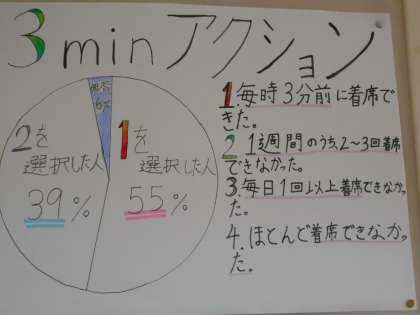 3minアクション
1.毎時3分前に着席で
きた。
2.1週間のうち、2~3回着席
できなかった。
3.毎日1回以上着席できなかっ
た。
4.ほとんど着席できなかっ
た。
1を
選択した人
55%
2を
選択した人
39%